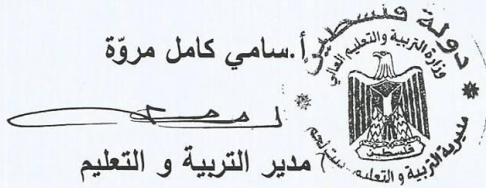 أ.سامي كامل مروّة
مدير التربية و التعليم
دولة فلسطين
وزارة التربية والتعليم العالي
فلسطين
مديرية التربية و التعليم - بيت لحم